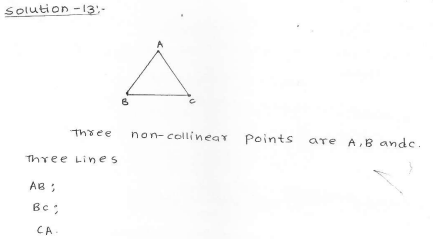 Solution -13:-
A
B
C
Three non-collinear Points are A, B and c.
Three Lines
AB;
BC;
CA.